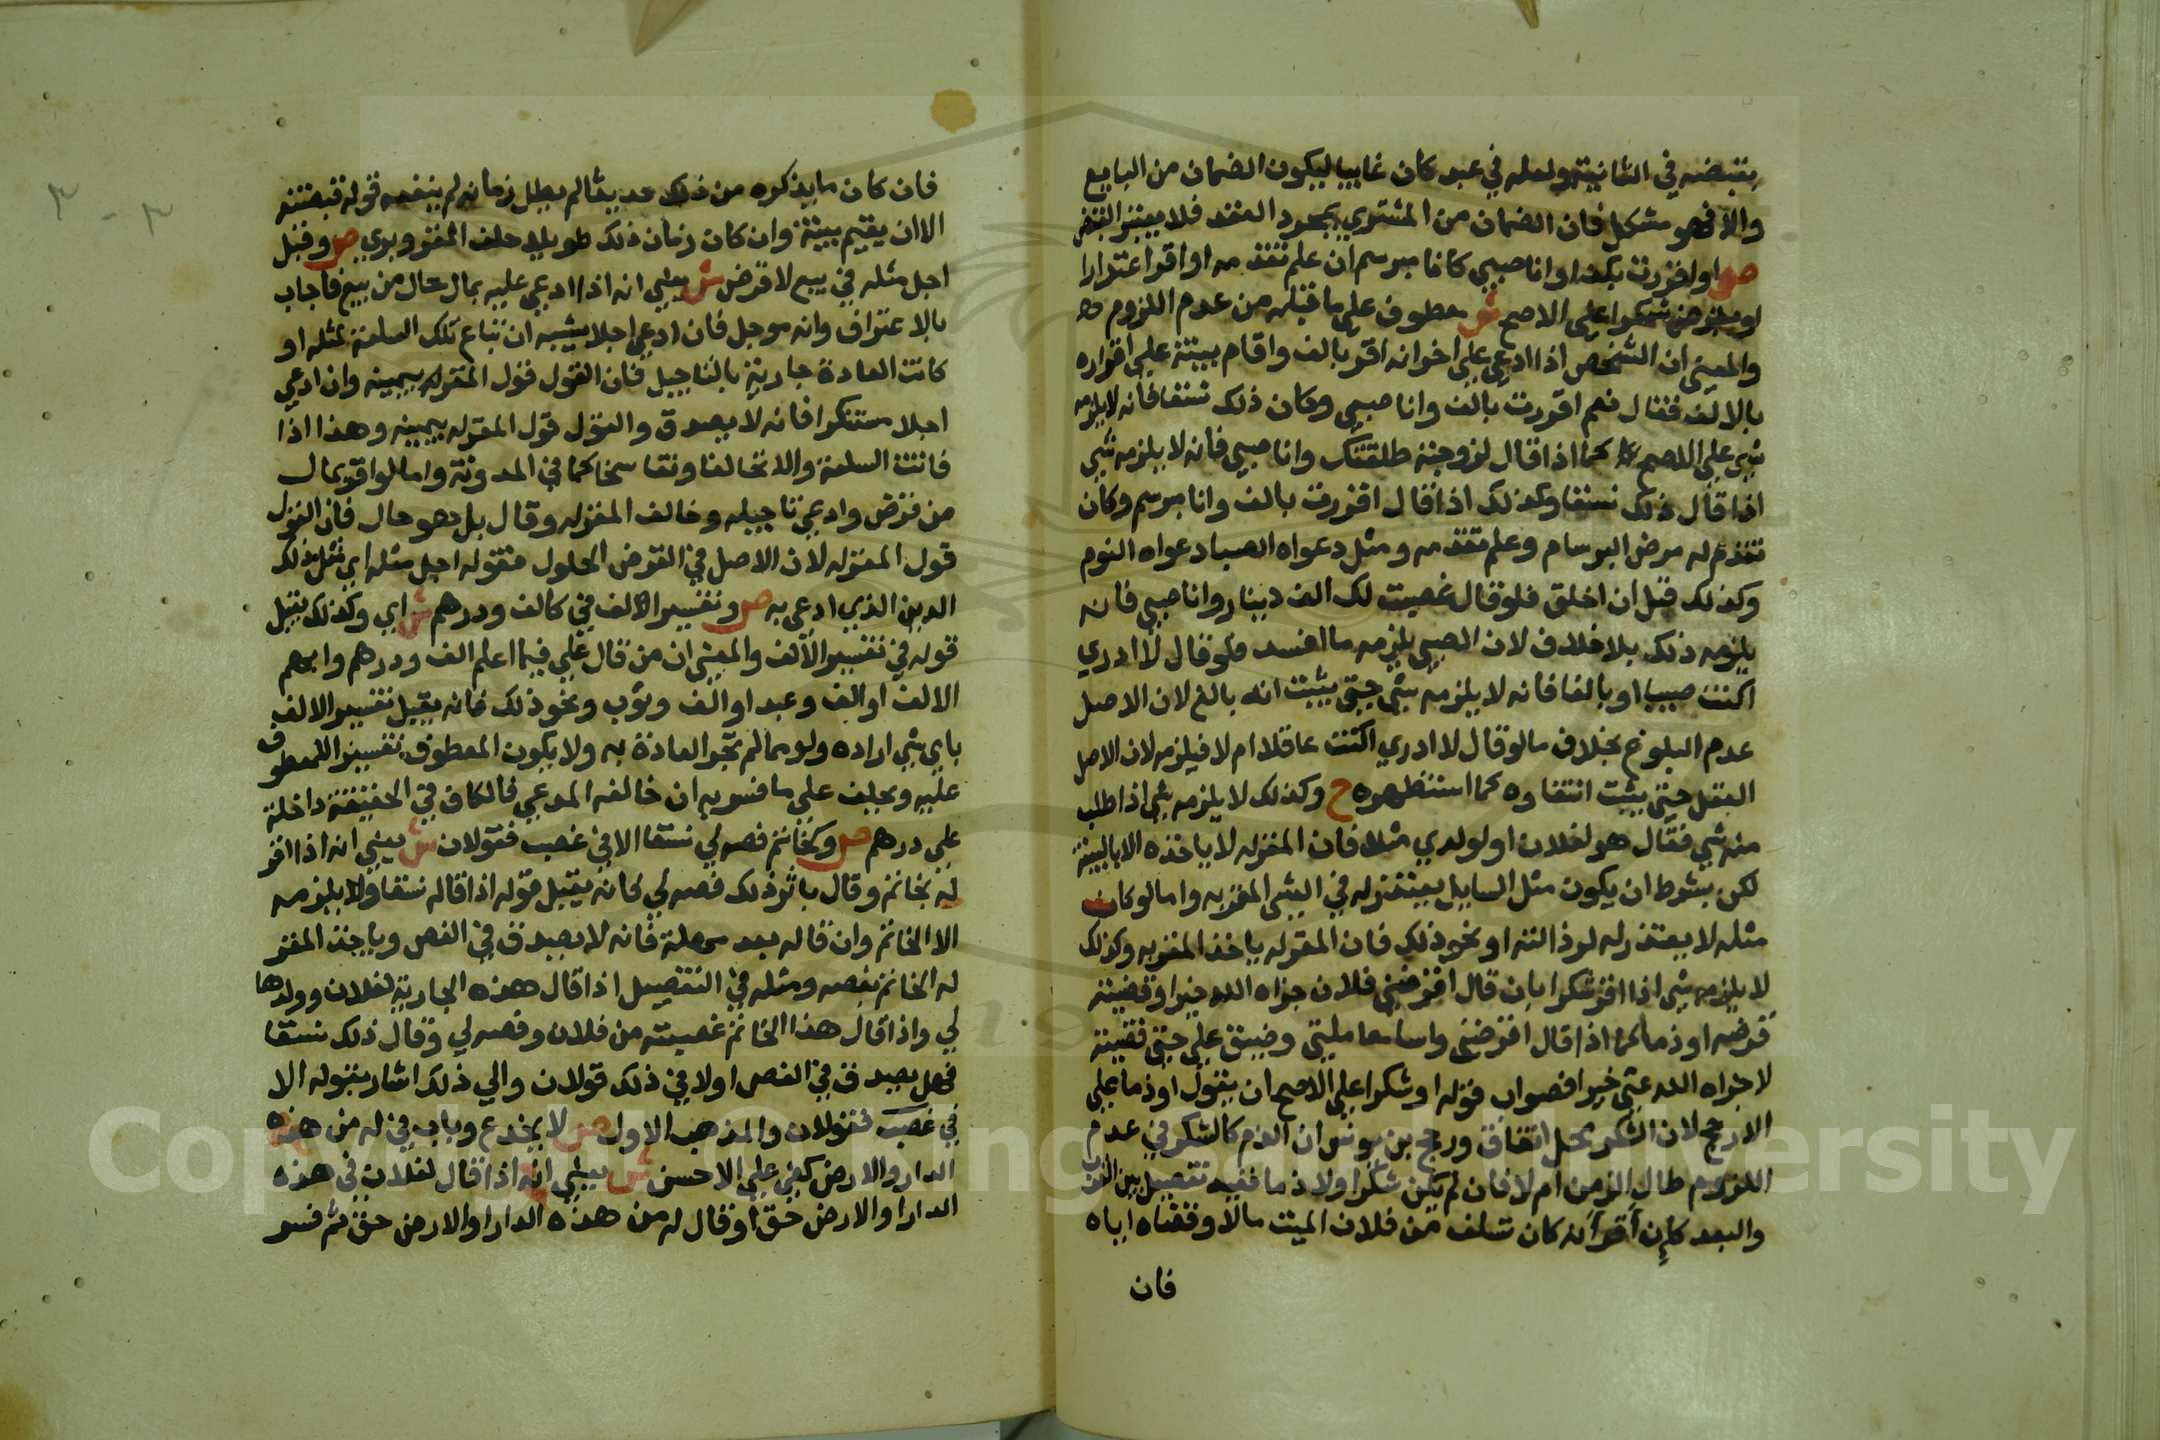 بقبضه في الثانية ولعله في عبد كان غايبا ليكون الضمان من البايع
والا فهو مشكل فان الضمان من المشتري بمجرد العقد فلا يعتبر القبض
ص او اقررت بكذا وانا صبي كانا مبرسم ان علم تقدمه او اقر اعتذارا
او بقرض شكرا على الاصح ش معطوف على ما قبله من عدم اللزوم
والمعنى ان الشخص اذا ادعى على اخر انه اقر بالف واقام بينة على اقراره
بالالف فقال نعم اقررت بالف وانا صبي وكان ذلك نسقا فانه لا يلزمه
شي على الاصح كما اذا قال لزوجته طلقتك وانا صبي فانه لا يلزمه شي
اذا قال ذلك نسقا وكذلك اذا قال اقررت بالف وانا مبرسم وكان
تقدم له مرض البرسام وعلم تقدمه ومثل دعواه الصبا دعواه النوم
وكذلك قبل ان اخلق فلو قال غصبت لك الف دينار وانا صبي فانه
يلزمه ذلك بلا خلاف لان الصبي يلزمه ما افسد فلو قال لا ادري
اكنت صبيا او بالغا فانه لا يلزمه شي حتى يثبت انه بالغ لان الاصل
عدم البلوغ بخلاف ما لو قال لا ادري اكنت عاقلا ام لا فيلزمه لان الاصل
العقل حتى يثبت انتفاوه كما استظهره ح وكذلك لا يلزمه شي اذا طلب
منه شي فقال هو لفلان او لولدي مثلا فان المقر له لا ياخذه الا بالبينة
لكن بشرط ان يكون مثل السايل يعتذر له في الشي المقر به واما لو كان
مثله لا يعتذر له لرذالته او نحو ذلك فان المقر له ياخذ المقر به وكذلك
لا يلزمه شي اذا اقر شكرا بان قال اقرضني فلان جزاه الله خيرا وقضيته
قرضه او ذما كما اذا قال اقرضني واسا معاملتي وضيق علي حتى قضيته
لا جزاه الله عني خيرا فصواب قوله او شكرا على الاصح ان يقول او ذما على
الارجح لان الشكر محل اتفاق ورجح بن يونس ان الذم كالشكر في عدم
اللزوم طال الزمن ام لا فان لم يكن شكرا ولا ذما ففيه تفصيل بين القرب
والبعد كان اقر انه كان تسلف من فلان الميت مالا وقضاه اياه
فان
فان كان ما يذكره من ذلك حديثا لم يطل زمانه لم ينفعه قوله قبضته
الا ان يقيم بينة وان كان زمان ذلك طويلا حلف المقر وبري ص وقبل
اجل مثله في بيع لا قرض ش يعني انه اذا ادعي عليه بمال حال من بيع فاجاب
بالاعتراف وانه موجل فان ادعى اجلا يشبه ان تباع تلك السلعة لمثله او
كانت العادة جارية بالتاجيل فان القول قول المقر له بيمينه وان ادعى
اجلا مستنكرا فانه لا يصدق والقول قول المقر له بيمينه وهذا اذا
فاتت السلعة والا تحالفا وتفاسخا كما في المدونة واما لو اقر بمال
من قرض وادعى تاجيله وخالف المقر له وقال بل هو حال فان القول
قول المقر له لان الاصل في القرض الحلول فقوله اجل مثله اي مثل ذلك
الدين الذي ادعى به ص وتفسير الالف في كالف ودرهم ش اي وكذلك يقبل
قوله في تفسير الالف والمعنى ان من قال علي فيما اعلم الف ودرهم وابهم
الالف او الف وعبد او الف وثوب ونحو ذلك فانه يقبل تفسير الالف
باي شي اراده ولو مما لم تجر العادة به ولا يكون المعطوف تفسيرا للمعطوف
عليه ويحلف على ما فسر به ان خالفه المدعي فالكاف في الحقيقة داخلة
على درهم ص وكخاتم فصه لي نسقا الا في غصب فقولان ش يعني انه اذا اقر
له بخاتم وقال باثر ذلك فصه لي فانه يقبل قوله اذا قاله نسقا ولا يلزمه
الا الخاتم وان قاله بعد مهلة فانه لا يصدق في الفص وياخذ المقر
له الخاتم بفصه ومثله في التفصيل اذا قال هذه الجارية لفلان وولدها
لي واذا قال هذا الخاتم غصبته من فلان وفصه لي وقال ذلك نسقا
فهل يصدق في الفص او لا في ذلك قولان والى ذلك اشار بقوله الا
في غصب فقولان والمذهب الاول ص لا بجذع وباب في له من هذه
الدار والارض كفي على الاحسن ش يعني انه اذا قال لفلان في هذه
الدار او الارض حق او قال له من هذه الدار او الارض حق ثم فسر
Copyright © King Saud University